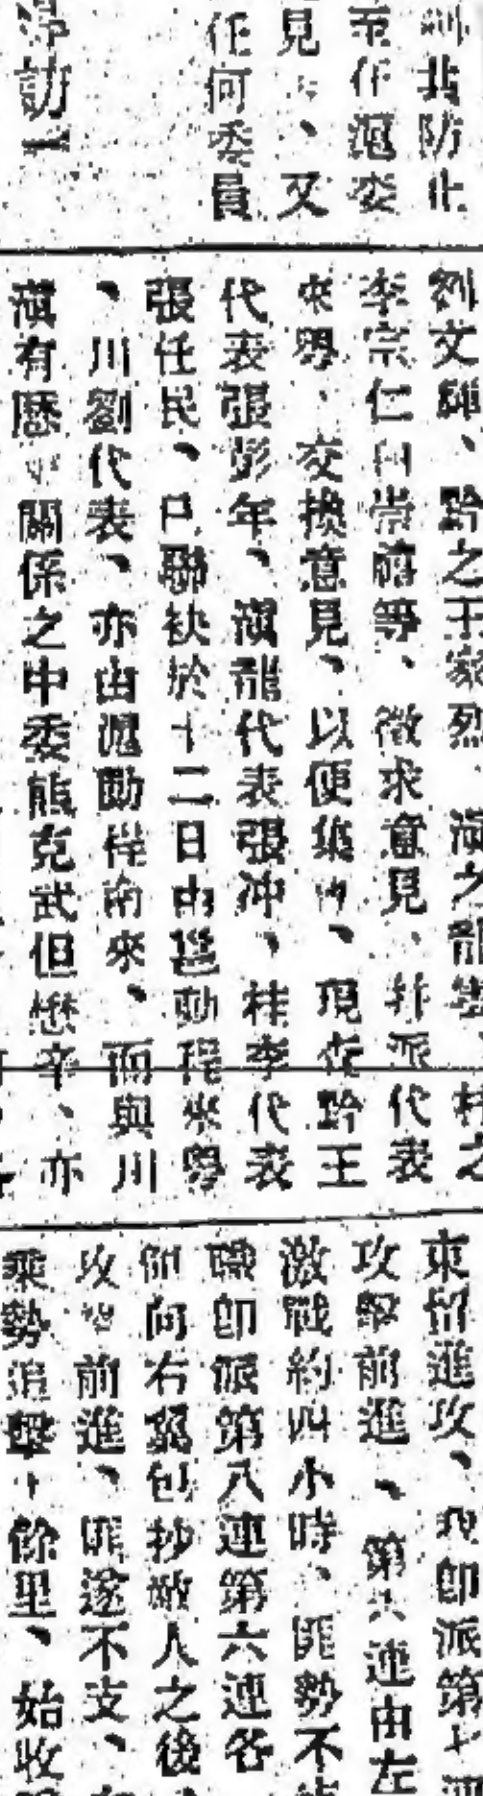 共防止
任滬委
見、又
任何委員
訪一
劉文輝、黔之王家烈、滇之龍雲、桂之
李宗仁白崇禧等、徵求意見、并派代表
來粵、交換意見、以便集、現在黔王
代表張彭年、滇龍代表張冲、桂李代表
張任民、已聯袂於十二日由邕動程來粵
、川劉代表、亦由滬動程南來、而與川
滇有歷關係之中委熊克武但懋辛、亦
東督進攻、我即派第七連
攻擊前進、第六連由左
激戰約四小時、匪勢不
職即派第八連第六連各
向右翼包抄敵人之後、
攻前進、匪遂不支、
乘勢追擊十餘里、始收